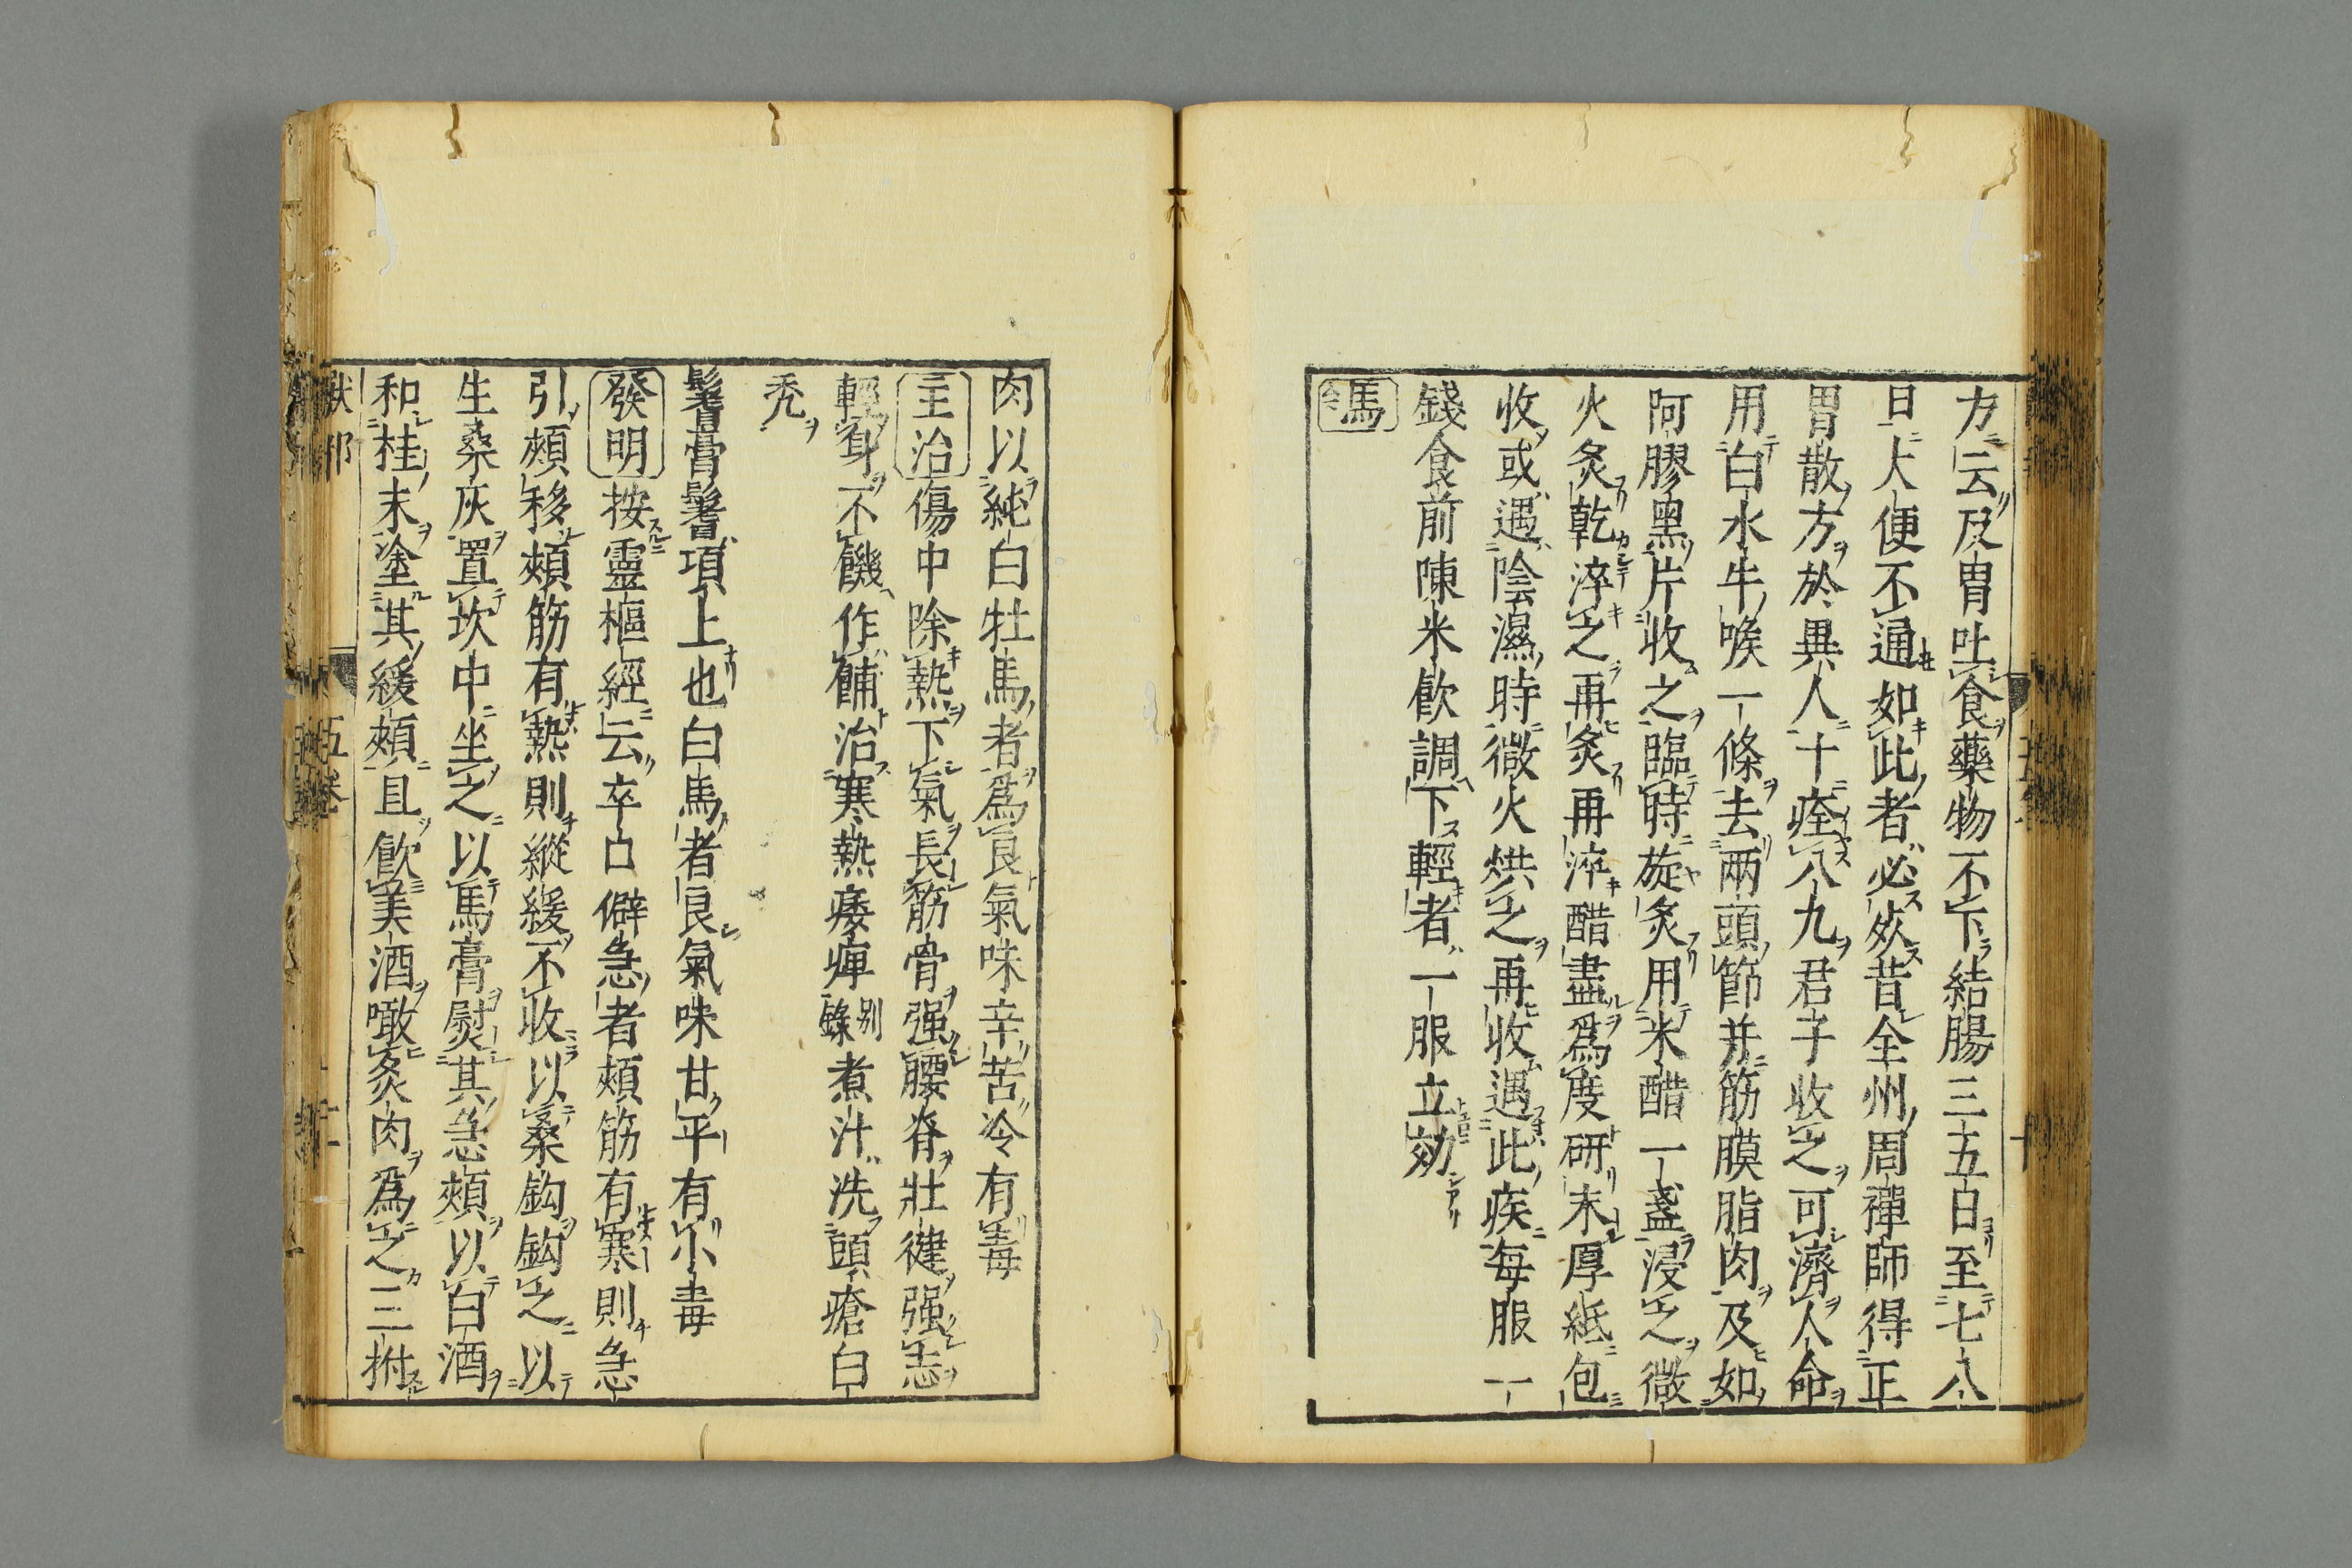 方云反胃吐食藥物不下結腸三五日至七八
日大便不通如此者必死昔全州周禪師得正
胃散方於異人十痊八九君子收之可濟人命
用白水牛喉一條去兩頭節并筋膜脂肉及如
阿膠黑片收之臨時旋炙用米醋一盞浸之微
火炙乾淬之再炙再淬醋盡爲度研末厚紙包
收或遇陰濕時微火烘之再收遇此疾每服一
錢食前陳米飲調下輕者一服立効
馬
肉以純白牡馬者爲良氣味辛苦冷有毒
主治傷中除熱下氣長筋骨强腰脊壯健强志
輕身不饑作脯治寒熱痿痺別錄煮汁洗頭瘡白
禿
鬐膏鬐項上也白馬者良氣味甘平有小毒
發明按靈樞經云卒口僻急者頰筋有寒則急
引頰移頰筋有熱則縱緩不收以桑鈎鈎之以
生桑灰置坎中坐之以馬膏熨其急頰以白酒
和桂末塗其緩頰且飲美酒噉炙肉爲之三拊
獸部
五卷